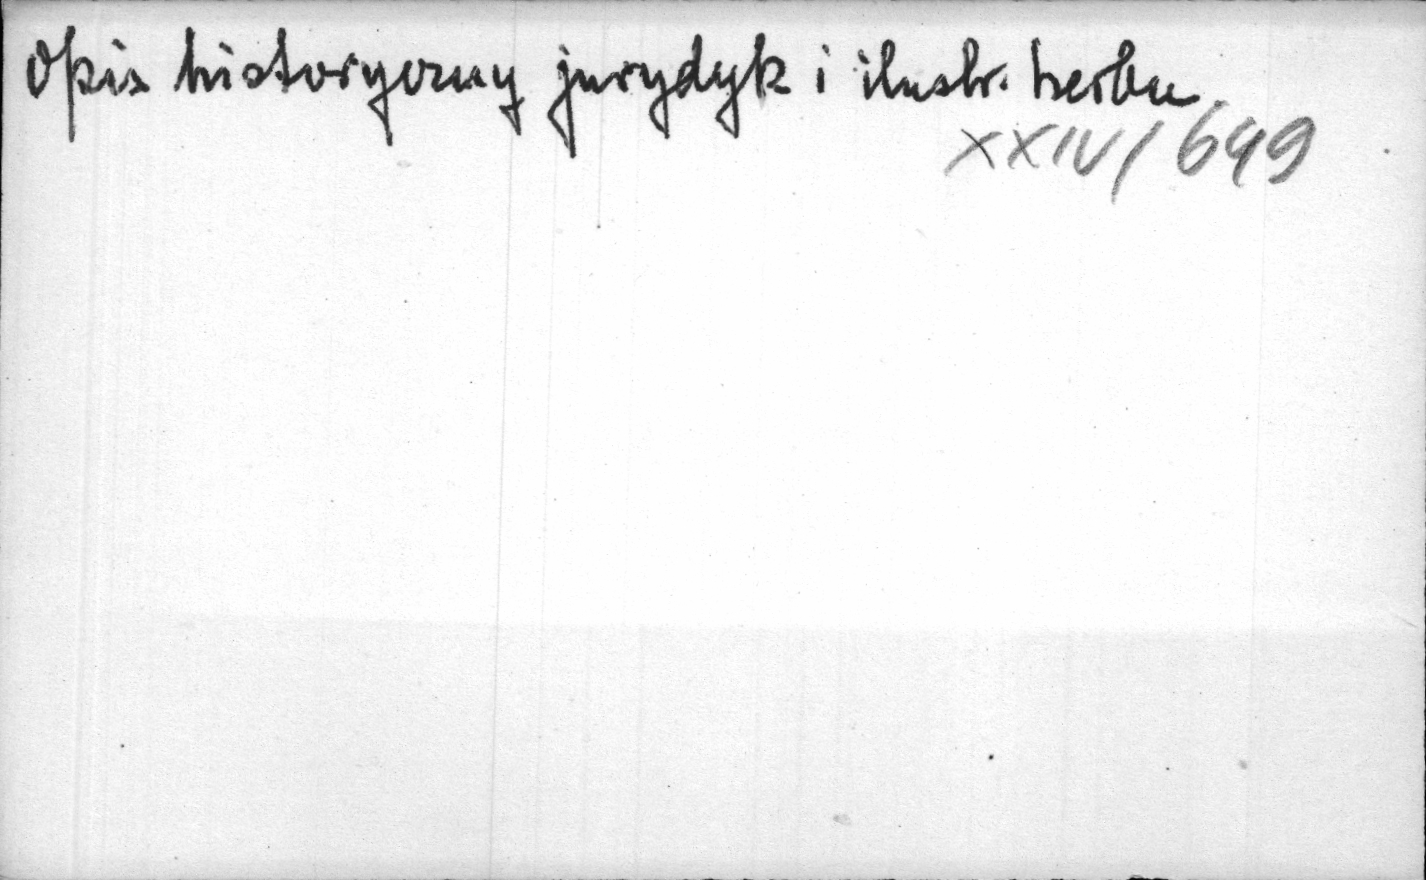 Opis historyczny jurydyk i ilustr. herbu.
XXIV/649